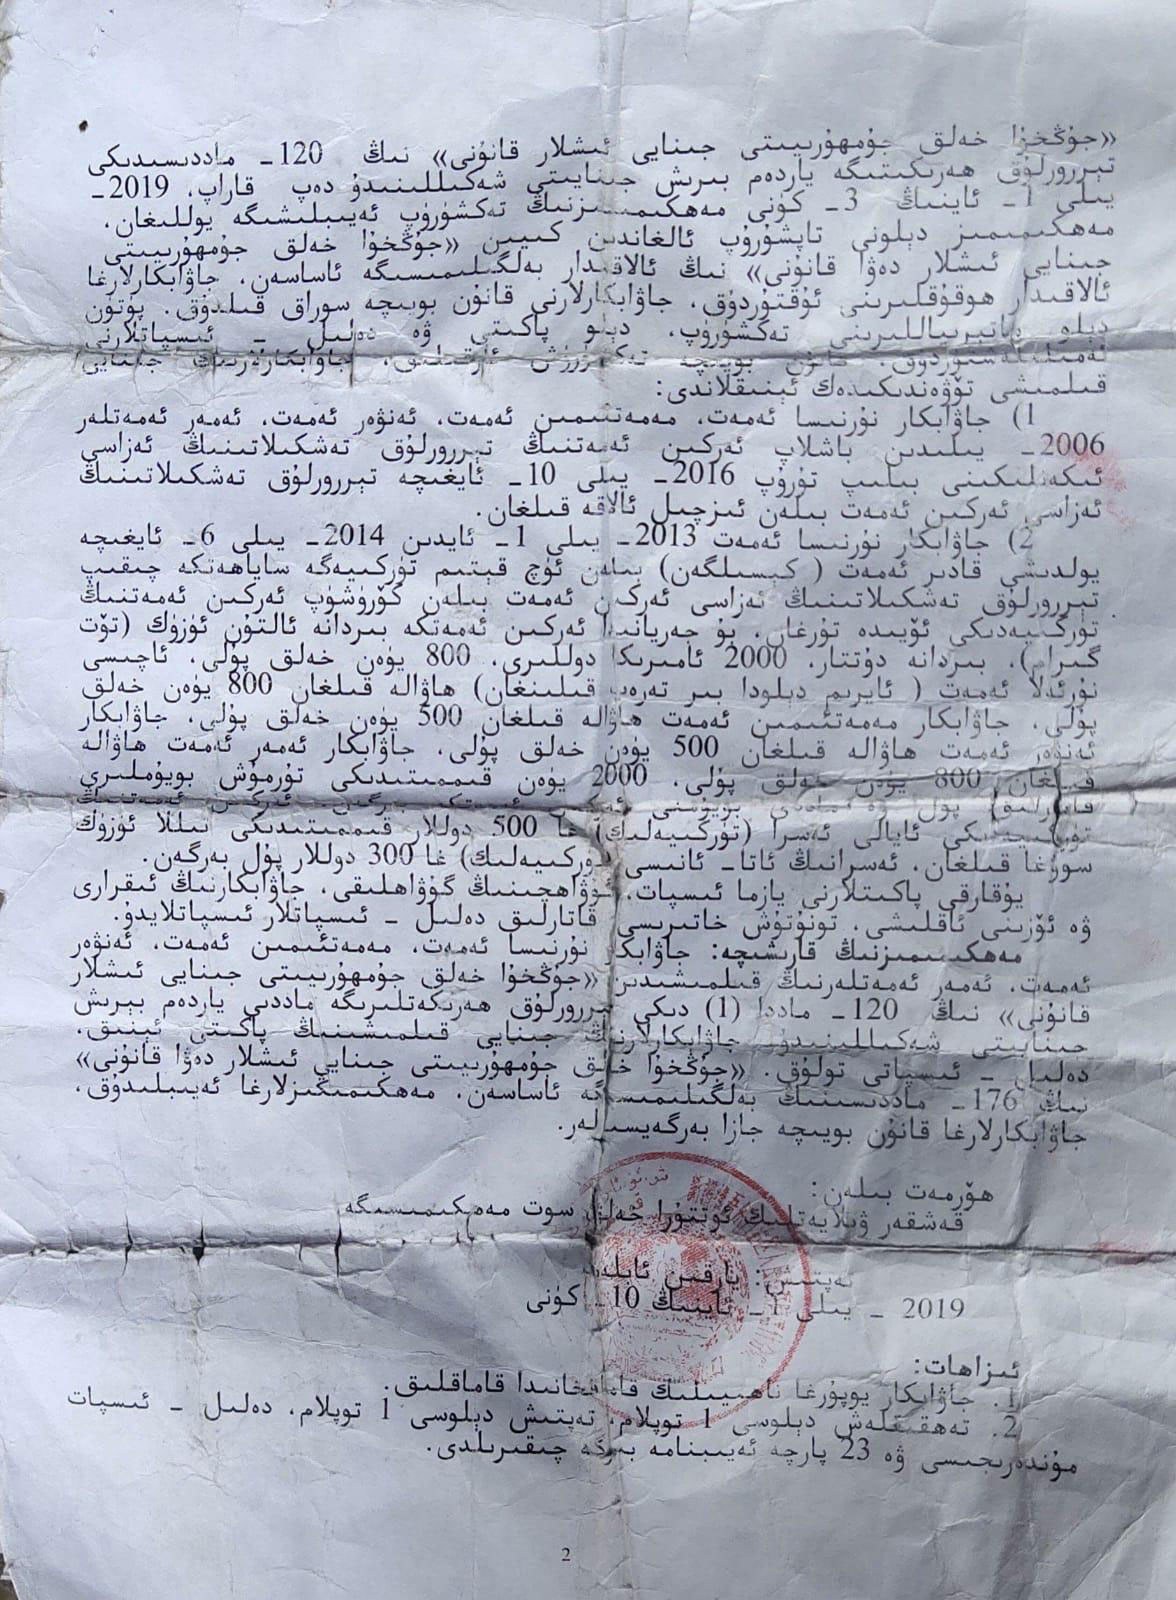 «جۇڭخۇا خەلق جۇمھۇرىيىتى جىنايى ئىشلار قانۇنى» نىڭ 120- ماددىسىدىكى
تېررورلۇق ھەرىكىتىگە ياردەم بىرىش جىنايىتى شەكىللىنىدۇ دەپ قاراپ، 2019-
يىلى 1- ئاينىڭ 3- كۈنى مەھكىمىمىزنىڭ تەكشۈرۈپ ئەيىبلىشىگە يوللىغان،
مەھكىمىمىز دېلونى تاپشۇرۇپ ئالغاندىن كىيىن «جۇڭخۇا خەلق جۇمھۇرىيىتى
جىنايى ئىشلار دەۋا قانۇنى» نىڭ ئالاقىدار بەلگىلىمىسىگە ئاساسەن، جاۋابكارلارغا
ئالاقىدار ھوقۇقلىرىنى ئۇقتۇردۇق، جاۋابكارلارنى قانۇن بويىچە سوراق قىلدۇق. پۈتۈن
دېلو ماتىرىياللىرىنى تەكشۈرۈپ، دېلو پاكىتى ۋە دەلىل - ئىسپاتلارنى
بويىچە جىنايى
قىلمىشى تۆۋەندىكىدەك ئېنىقلاندى:
1) جاۋابكار نۇرنىسا ئەمەت، مەمەتئىمىن ئەمەت، ئەنۋەر ئەمەت، ئەمەر ئەمەتلەر
2006- يىلىدىن باشلاپ ئەركىن ئەمەتنىڭ تېررورلۇق تەشكىلاتىنىڭ ئەزاسى
ئىكەنلىكىنى بىلىپ تۇرۇپ 2016- يىلى 10- ئايغىچە تېررورلۇق تەشكىلاتىنىڭ
ئەزاسى ئەركىن ئەمەت بىلەن ئىزچىل ئالاقە قىلغان.
2) جاۋابكار نۇرنىسا ئەمەت 2013- يىلى 1- ئايدىن 2014- يىلى 6- ئايغىچە
يولدىشى قادىر ئەمەت ( كېسىلگەن) بىلەن ئۈچ قېتىم تۈركىيەگە ساياھەتكە چىقىپ
تېررورلۇق تەشكىلاتىنىڭ ئەزاسى ئەركىن ئەمەت بىلەن كۆرۈشۈپ ئەركىن ئەمەتنىڭ
تۈركىيەدىكى ئۆيىدە تۇرغان، بۇ جەرياندا ئەركىن ئەمەتكە بىردانە ئالتۇن ئۈزۈك (تۆت
گىرام)، بىردانە دۇتتار، 2000 ئامىرىكا دوللىرى، 800 يۈەن خەلق پۇلى، ئاچىسى
نۇرئەلا ئەمەت ( ئايرىم دېلودا بىر تەرەپ قىلىنغان) ھاۋالە قىلغان 800 يۈەن خەلق
پۇلى، جاۋابكار مەمەتئىمىن ئەمەت ھاۋالە قىلغان 500 يۈەن خەلق پۇلى، جاۋابكار
ئەنۋەر ئەمەت ھاۋالە قىلغان 500 يۈەن خەلق پۇلى، جاۋابكار ئەمەر ئەمەت ھاۋالە
قىلغان 800 يۈەن خەلق پۇلى، 2000 يۈەن قىممىتىدىكى تۇرمۇش بويۇملىرى
( قاتارلىق) پۇل ۋە ئەركىن ئەمەتنىڭ
تۈركىيەدىكى ئايالى ئەسرا (تۈركىيەلىك) غا 500 دوللار قىممىتىدىكى تىللا ئۈزۈك
سوۋغا قىلغان، ئەسرانىڭ ئاتا- ئانىسى (تۈركىيەلىك) غا 300 دوللار پۇل بەرگەن.
يۇقارقى پاكىتلارنى يازما ئىسپات، گۇۋاھچىنىڭ گۇۋاھلىقى، جاۋابكارنىڭ ئىقرارى
ۋە ئۆزىنى ئاقلىشى، تونۇتۇش خاتىرىسى قاتارلىق دەلىل - ئىسپاتلار ئىسپاتلايدۇ.
مەھكىمىمىزنىڭ قارىشىچە: جاۋابكار نۇرنىسا ئەمەت، مەمەتئىمىن ئەمەت، ئەنۋەر
ئەمەت، ئەمەر ئەمەتلەرنىڭ قىلمىشىدىن «جۇڭخۇا خەلق جۇمھۇرىيىتى جىنايى ئىشلار
قانۇنى» نىڭ 120- ماددا (1) دىكى تېررورلۇق ھەرىكەتلىرىگە ماددىي ياردەم بېرىش
جىنايىتى شەكىللىنىدۇ. جاۋابكارلارنىڭ جىنايى قىلمىشىنىڭ پاكىتى ئېنىق،
دەلىل - ئىسپاتى تولۇق. «جۇڭخۇا خەلق جۇمھۇرىيىتى جىنايى ئىشلار دەۋا قانۇنى»
نىڭ 176- ماددىسىنىڭ بەلگىلىمىسىگە ئاساسەن، مەھكىمىڭىزلارغا ئەيىبلىدۇق،
جاۋابكارلارغا قانۇن بويىچە جازا بەرگەيسىلەر.
ھۆرمەت بىلەن:
قەشقەر ۋىلايەتلىك ئوتتۇرا خەلق سوت مەھكىمىسىگە
تەپتىش: يارقىن
2019 - يىلى 1- ئاينىڭ 10- كۈنى
ئىزاھات:
1. جاۋابكار يوپۇرغا ناھىيىلىك قاماقخانىدا قاماقلىق.
2. تەھقىقلەش دېلوسى 1 توپلام، تەپتىش دېلوسى 1 توپلام، دەلىل - ئىسپات
مۇندەرىجىسى ۋە 23 پارچە ئەيىبنامە بەرگە چىقىرىلدى.
2